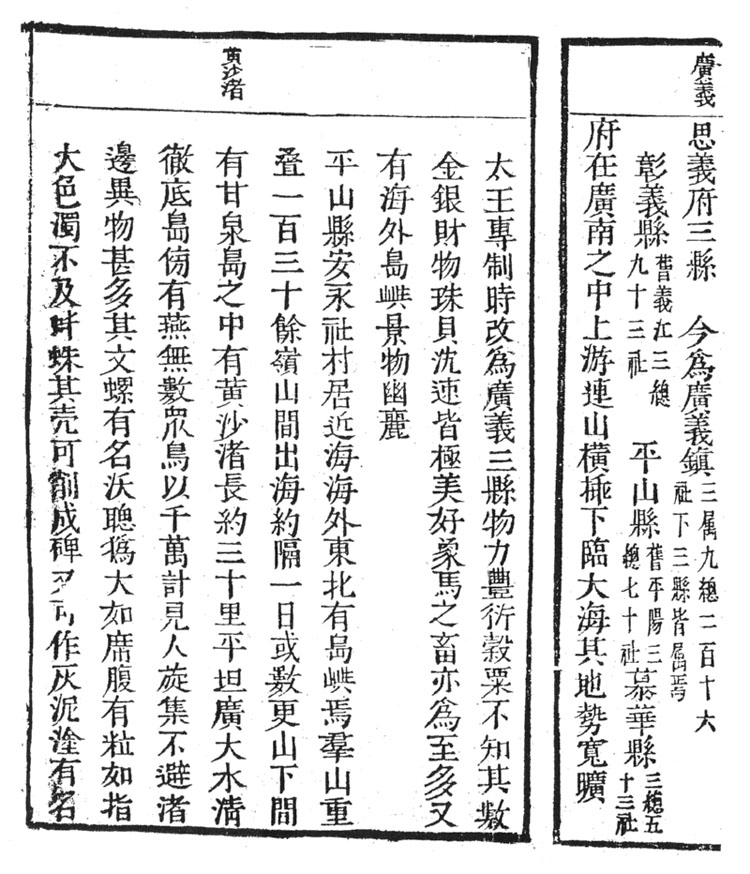 廣義
思義府三縣　今爲廣義鎮三属九總二百十六社下三縣皆属焉
彰義縣舊義江三總九十三社　平山縣舊平陽三總七十社慕華縣三總五十三社
府在廣南之中上游連山橫下臨大海其地勢寬曠
黄沙渚
太王專制時改爲廣義三縣物力豐衍穀粟不知其數
金銀財物珠貝沈速皆極美好象馬之畜亦爲至多又
有海外島㟟景物幽麗
平山縣安永社村居近海海外東北有島㟟焉羣山重
叠一百三十餘嶺山間出海約隔一日或數更山下間
有甘泉島之中有黄沙渚長約三十里平坦廣大水清
徹底島傍有燕無數眾鳥以千萬計見人旋集不避渚
邊異物甚多其文螺有名沃聰爲大如席腹有粒如指
大色濁不及蚌蛛其売可削成碑又可作灰泥塗有名